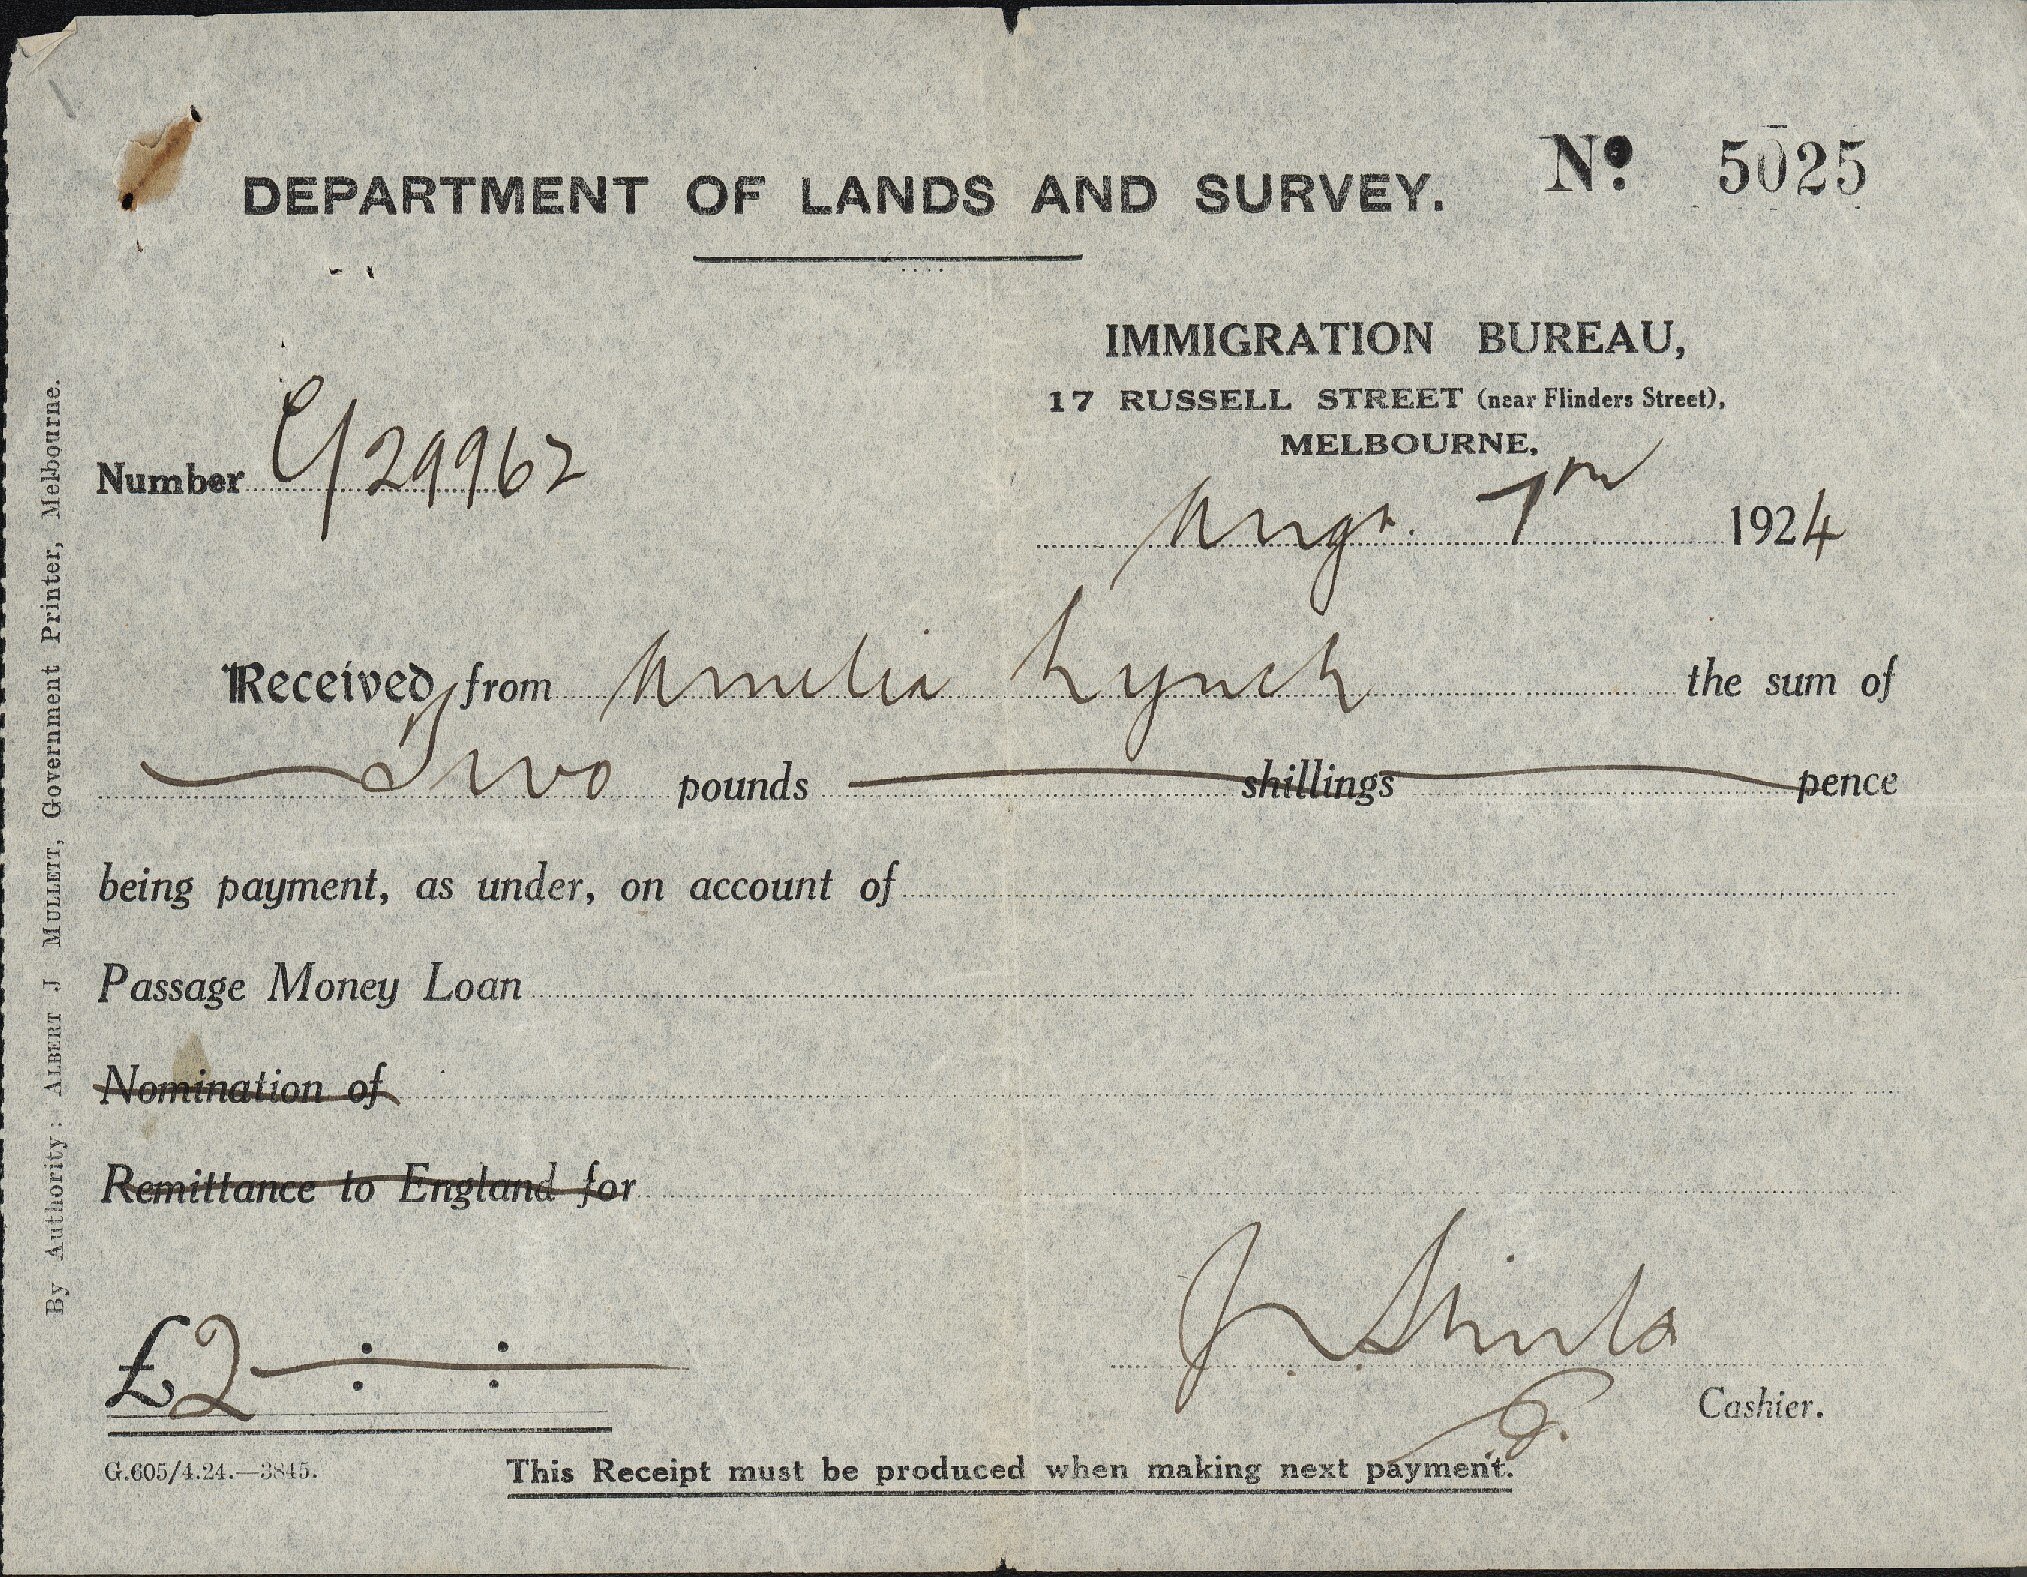 DEPARTMENT OF LANDS AND SURVEY.
No. 5025
IMMIGRATION BUREAU,
17 RUSSELL STREET (near Flinders Street),
MELBOURNE.
Number C/29962
Augt. 7th 1924
Received from Amelia Lynch the sum of
Two pounds shillings pence
being payment, as under, on account of
Passage Money Loan
Nomination of
Remittance to England for
£2 : :
J.
Cashier.
G.605/4.24.—3845.
This Receipt must be produced when making next payment.
By Authority: ALBERT J MULLETT, Government Printer, Melbourne.